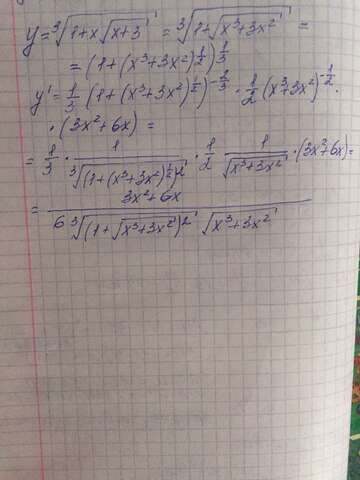 y = ∛(1+x√(x+3)) = ∛(1+√(x³+3x²)) =
= (1+(x³+3x²)^(1/2))^(1/3)
y' = 1/3 (1+(x³+3x²)^(1/2))^(-2/3) · 1/2 (x³+3x²)^(-1/2) ·
· (3x²+6x) =
= 1/3 · 1/∛((1+(x³+3x²)^(1/2))²) · 1/2 · 1/√(x³+3x²) · (3x²+6x) =
= (3x²+6x)/(6∛((1+√(x³+3x²))²) √(x³+3x²))